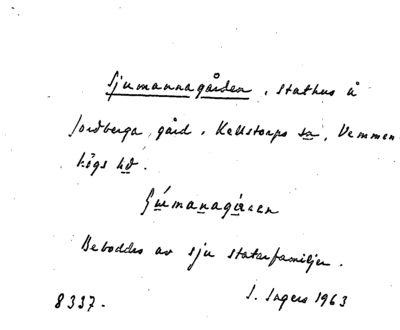 Sjumannagården, stathus å
Jordberga gård, Källstorps sn, Vemmen-
högs hd.
Beboddes av sju statarfamiljer.
I. Ingers 1963
8337.